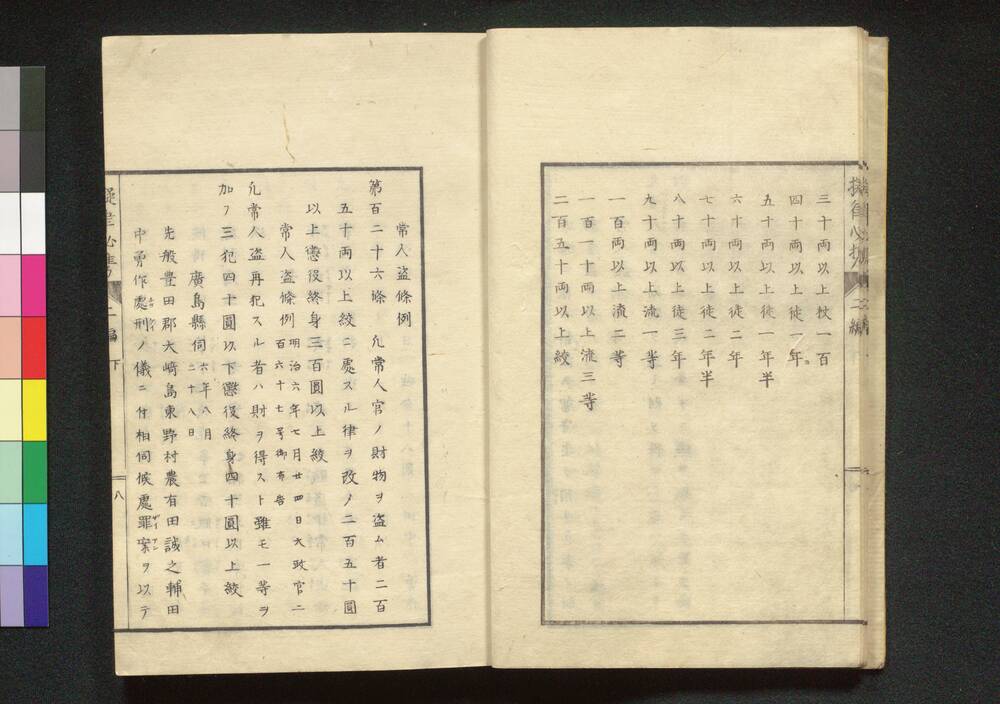 三十両以上杖一百
四十両以上徒一年
五十両以上徒一年半
六十両以上徒二年
七十両以上徒二年半
八十両以上徒三年
九十両以上流一等
一百両以上流二等
一百一十両以上流三等
二百五十両以上絞
常人盗條例
第百二十六條 凡常人官ノ財物ヲ盗ム者二百
五十両以上絞ニ處スル律ヲ改メ二百五十圓
以上懲役終身三百圓以上絞
常人盗條例 明治六年七月廿四日大政官二
百六十七号御布告
凡常人盗再犯スル者ハ財ヲ得スト雖モ一等ヲ
加フ三犯四十圓以下懲役終身四十圓以上絞
廣島縣伺 六年八月
二十八日
先般豊田郡大﨑島東野村農有田誠之輔田
中勇作處刑ノ儀ニ付相伺候處罪案ヲ以テ
二編 下
八